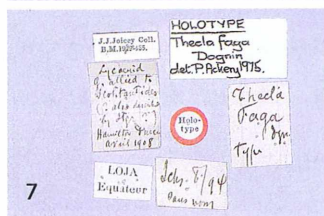 J.J.Joicey Coll.
B.M.1929-435.
HOLOTYPE
Thecla faga
Dognin
det. P. Ackery 1975.
Lycaenid
g. allied to
Scolitantides
Hamilton Druce
april 1908
Holo-
type
Thecla
Faga
Dgn
Type
LOJA
Equateur
7